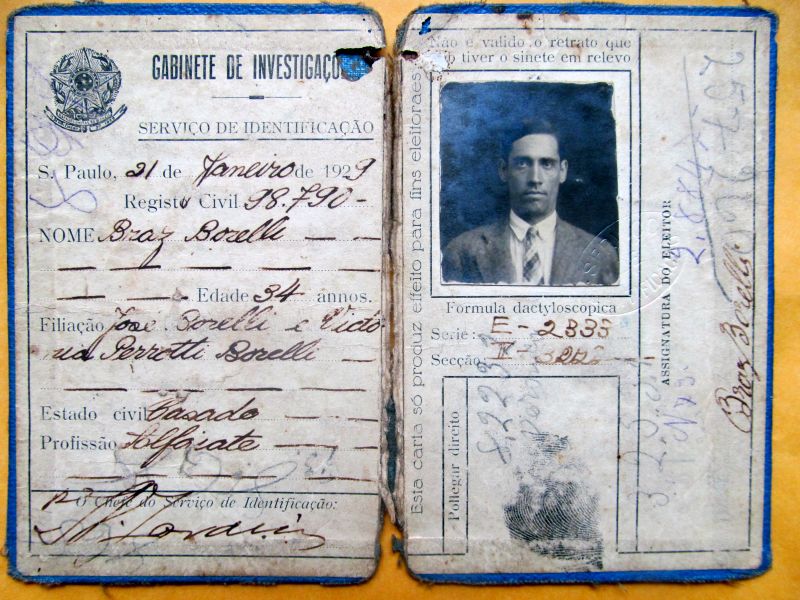 GABINETE DE INVESTIGAÇÕ
SERVIÇO DE IDENTIFICAÇÃO
S. Paulo, 21 de Janeiro de 1929
Registo Civil 98.790
NOME Braz Borelli
Edade 34 annos.
Filiação José Borelli e Victo
ria Perrotti Borelli
Estado civil Casado
Profissão Alfaiate
O Chefe do Serviço de Identificação:
Não é valido o retrato que
tiver o sinete em relevo
Esta carta só produz effeito para fins eleitoraes
Formula dactyloscopica
Serie: E-2333
Secção
Pollegar direito
ASSIGNATURA DO ELEITOR
Braz Borelli